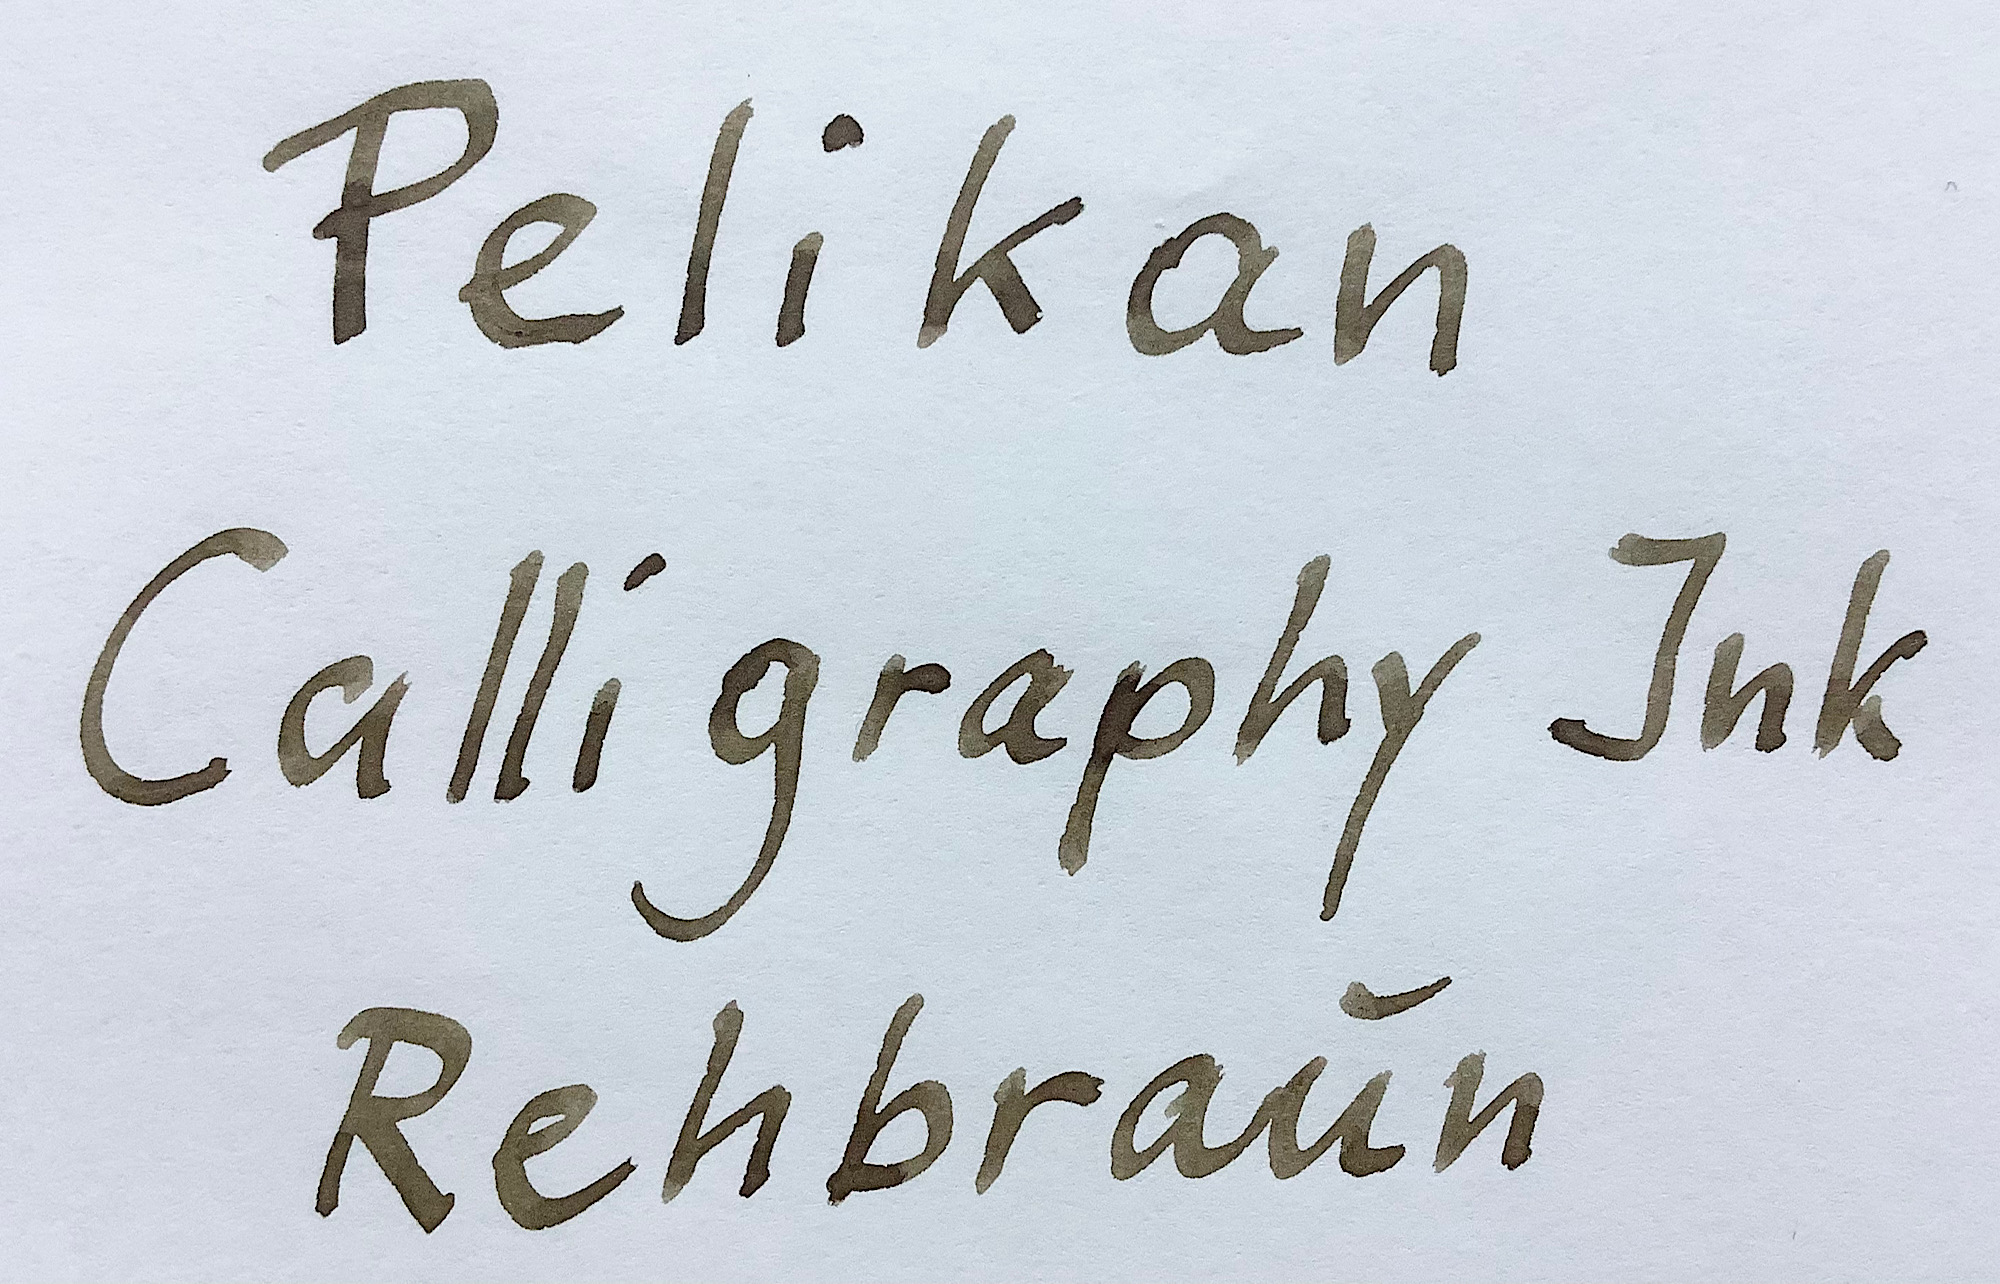 Pelikan
Calligraphy Ink
Rehbraŭn